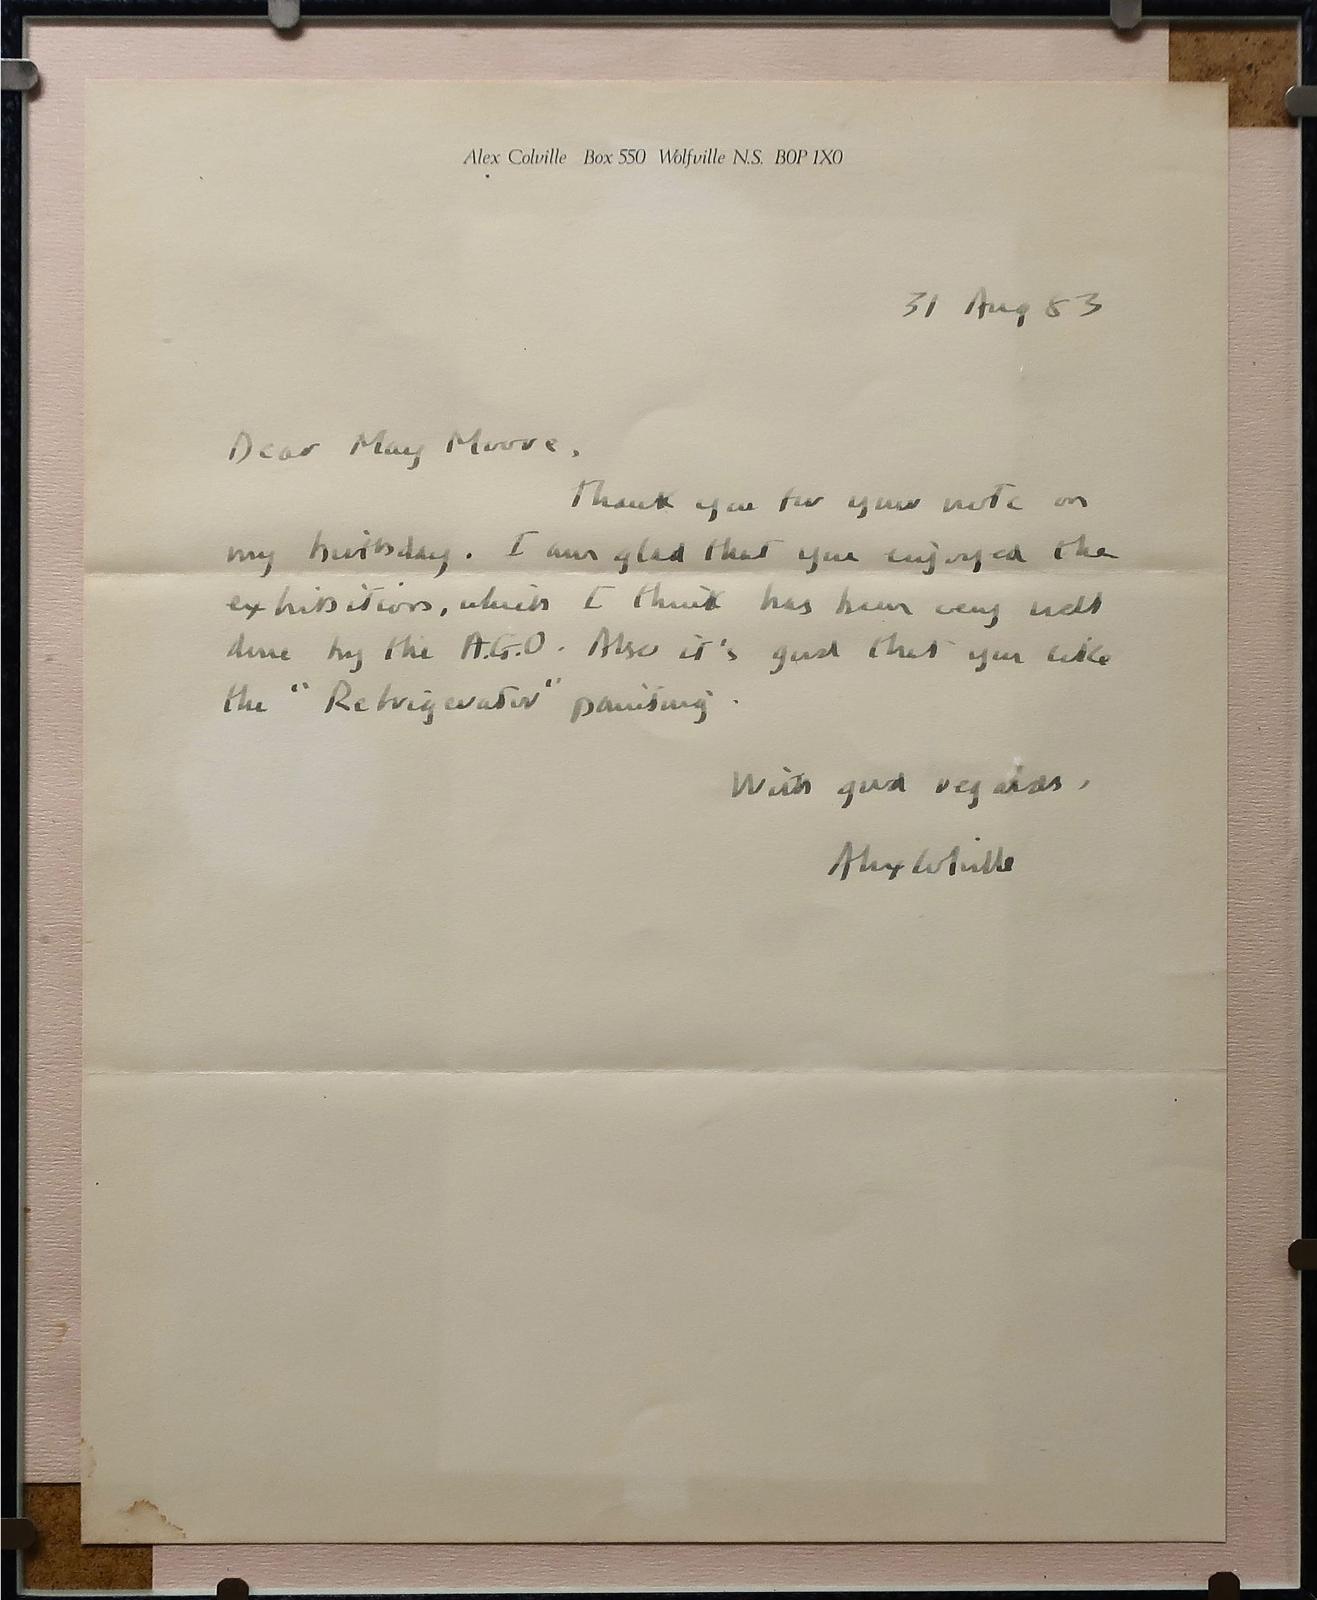 Alex Colville Box 550 Wolfville N.S. B0P 1X0
31 Aug 83
Dear May Moore,
Thank you for your note on
my birthday. I am glad that you enjoyed the
exhibition, which I think has been very well
done by the A.G.O. Also it's good that you like
the "Refrigerator" painting.
With good regards,
Alex Colville